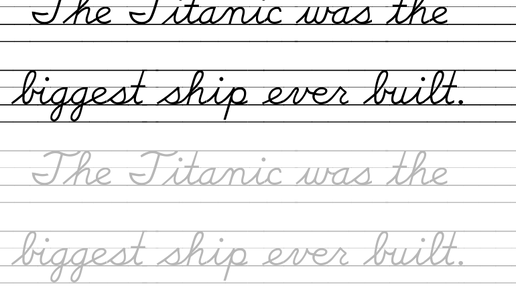 The Titanic was the
biggest ship ever built.
The Titanic was the
biggest ship ever built.